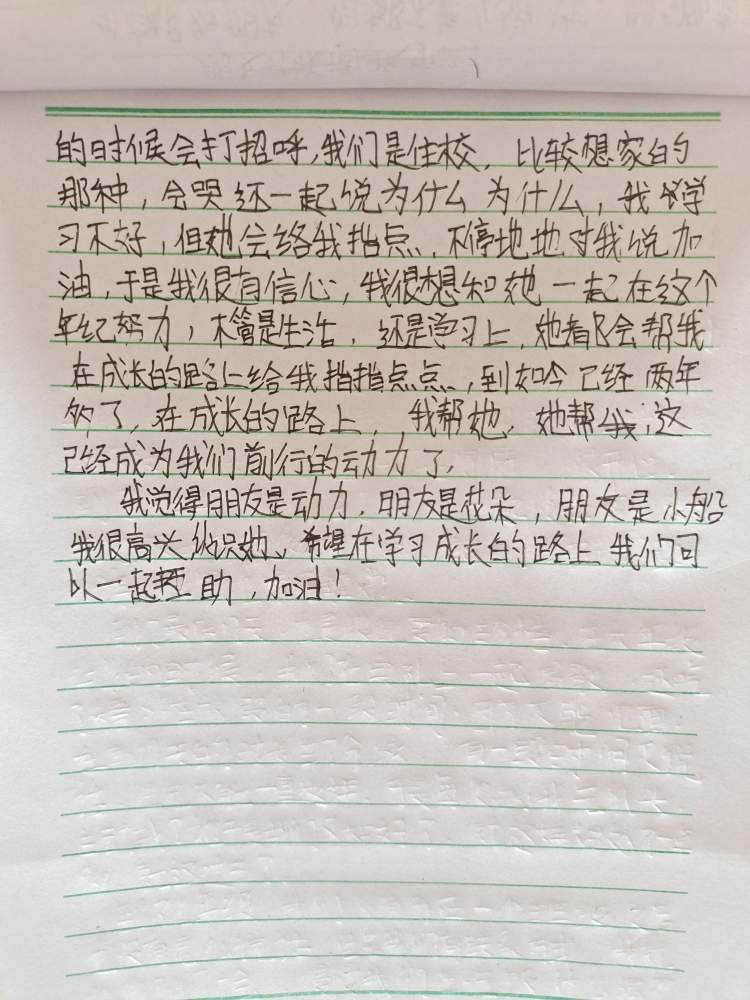 的时候会打招呼,我们是住校,比较想家的
那种,会哭还一起说为什么为什么,我学
习不好,但她会给我指点,不停地地对我说加
油,于是我很有信心,我很想和她一起在这个
年纪努力,不管是生活,还是学习上,她都会帮我
在成长的路上给我指指点点,到如今已经两年
够了,在成长的路上,我帮她,她帮我,这
已经成为我们前行的动力了,
我觉得朋友是动力,朋友是花朵,朋友是小船
我很高兴认识她、希望在学习成长的路上我们可
以一起互助,加油!